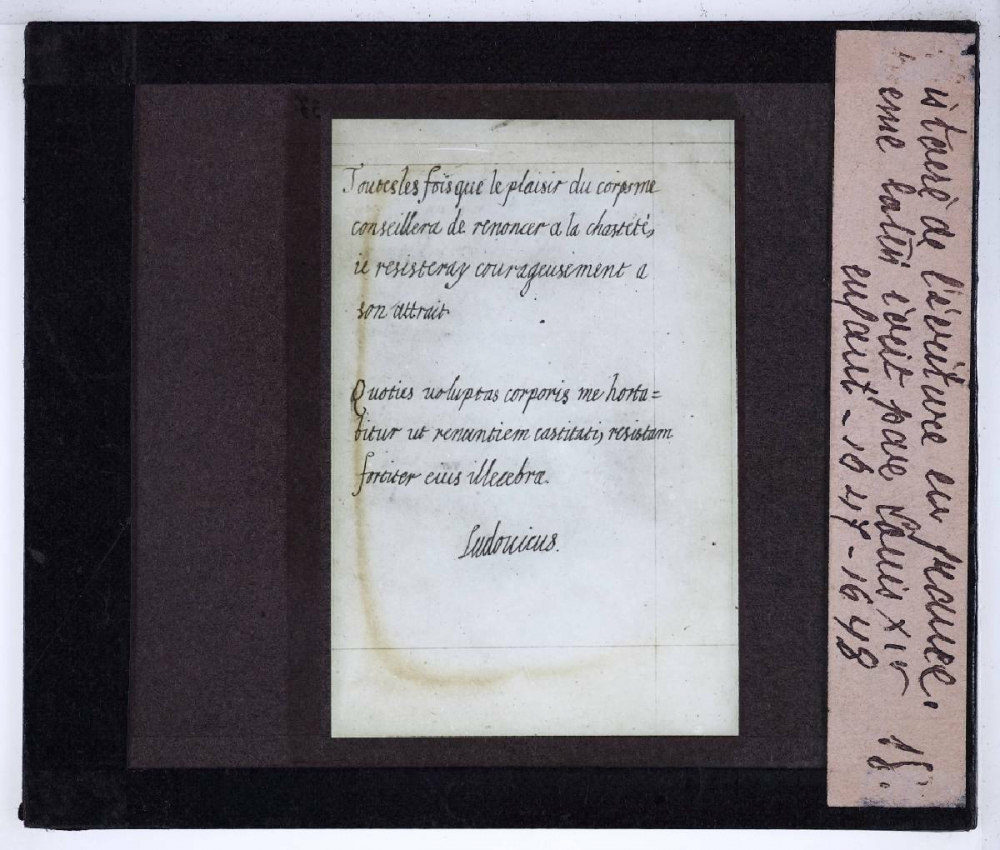 Toutes les fois que le plaisir du corps me
conseillera de renoncer a la chasteté,
ie resisteray courageusement a
son attrait
Quoties uoluptas corporis me horta=
bitur ut renuntiem castitati, resistam
fortiter eius illecebræ.
Ludouicus.
istoire de l'écriture en france.
eme latin écrit par Louis XIV
enfant - 1647-1648
15.